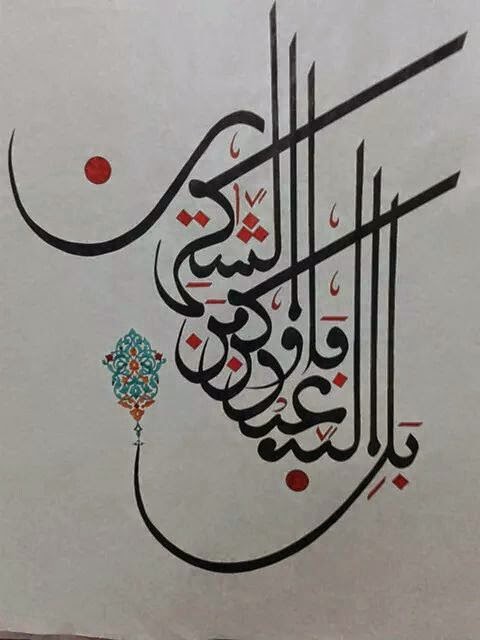 بَلِ الله فاعبد وكن مِنَ الشاكرين